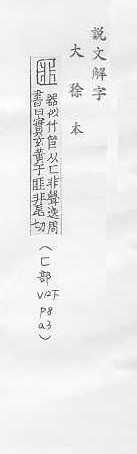 說文解字
大徐本
匪
器似竹筐从匚非聲逸周
書曰實玄黃于匪非尾切
(匚部 V12下 P8 a3)